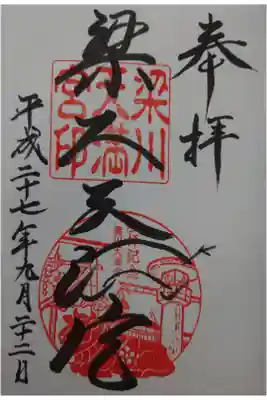 奉拝
梁川天満宮
梁川
天満
宮印
平成二十七年九月二十二日